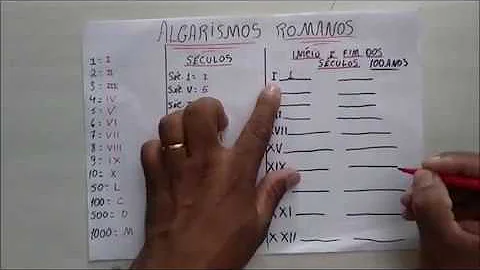 ALGARISMOS ROMANOS
1 = I
2 = II
3 = III
4 = IV
5 = V
6 = VI
7 = VII
8 = VIII
9 = IX
10 = X
50 = L
100 = C
500 = D
1000 = M
SÉCULOS
SÉC I = 1
SÉC V = 5
SÉC
INÍCIO E FIM DOS
SÉCULOS 100 ANOS
I 1
XVII
XV
XIX
XXI
XXII